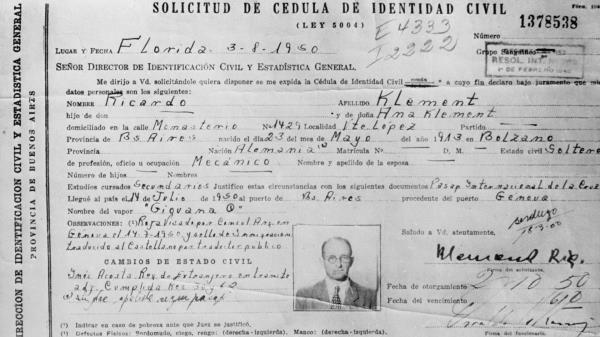 SOLICITUD DE CEDULA DE IDENTIDAD CIVIL
(LEY 5004)
1378538
E4333
I2222
Número
LUGAR Y FECHA Florida 3-8-1950
Grupo Sanguíneo
RESOL. INT. Nº
SEÑOR DIRECTOR DE IDENTIFICACIÓN CIVIL Y ESTADÍSTICA GENERAL.
Me dirijo a Vd. solicitándole quiera disponer se me expida la Cédula de Identidad Civil común a cuyo fin declaro bajo juramento que mis
datos personales son los siguientes:
NOMBRE Ricardo APELLIDO Klement
hijo de don y de doña Ana Klement
domiciliado en la calle Monasterio Nº 1429 Localidad Vte. López Partido
Provincia de Bs. Aires nacido el día 23 del mes de Mayo del año 1913 en Bolzano
Provincia de Nación Alemania Matrícula Nº D. M. Estado civil Soltero
de profesión, oficio u ocupación Mecánico Nombre y apellido de la esposa
Número de hijos Nombres
Estudios cursados Secundarios Justifico estas circunstancias con los siguientes documentos Pasap. Internacional de la Cruz
Llegué al país el 14 de Julio de 1950 al puerto de Bs. Aires procedente del puerto de Genova
Nombre del vapor "Giovana C"
OBSERVACIONES: (¹) Roja Visado por Consul Arg. en
Genova el
traducido al Castellano por traductor publico
Saludo a Vd. atentamente,
Firma del solicitante.
CAMBIOS DE ESTADO CIVIL
Fecha de otorgamiento 2 10 50
Fecha del vencimiento
Firma del funcionario.
(¹) Indicar en caso de pobreza ante que Juez se justificó.
(²) Defectos Físicos: Sordomudo, ciego, rengo: (derecha-izquierda). Manco: (derecha-izquierda).
DIRECCION DE IDENTIFICACION CIVIL Y ESTADISTICA GENERAL
PROVINCIA DE BUENOS AIRES